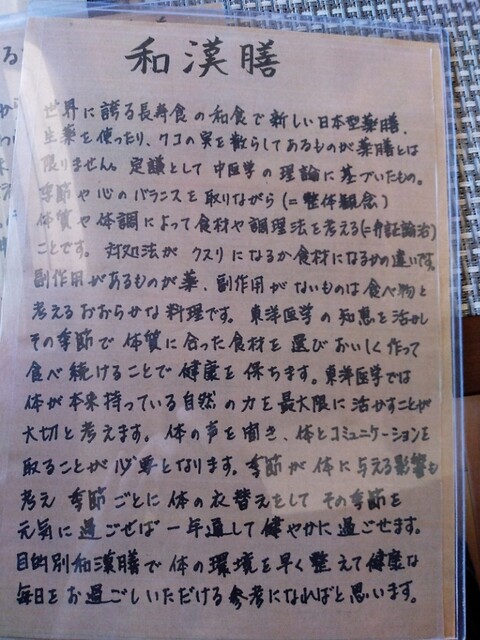 和漢膳
世界に誇る長寿食の和食で新しい日本型薬膳、
生薬を使ったり、クコの実を散らしてあるものが薬膳とは
限りません。定議として中医学の理論に基づいたもの。
季節や心のバランスを取りながら(=整体観念)
体質や体調によって食材や調理法を考える(=弁証論治)
ことです。対処法がクスリになるか食材になるかの違いです。
副作用があるものが薬、副作用がないものは食べ物と
考えるおおらかな料理です。東洋医学の知恵を活かし
その季節で体質に合った食材を選びおいしく作って
食べ続けることで健康を保ちます。東洋医学では
体が本来持っている自然の力を最大限に活かすことが
大切と考えます。体の声を聞き、体とコミュニケーションを
取ることが必要となります。季節が体に与える影響も
考え季節ごとに体の衣替えをしてその季節を
元気に過ごせば一年通して健やかに過ごせます。
目的別和漢膳で体の環境を早く整えて健康な
毎日をお過ごしいただける参考になればと思います。